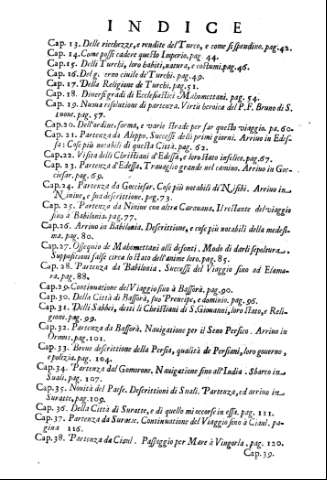 INDICE
Cap. 13. Delle ricchezze, e rendite del Turco, e come si spendino. pag. 42.
Cap. 14. Come possi cadere questo Imperio. pag 44.
Cap. 15. Delli Turchi, loro habiti, natura, e costumi. pag. 46.
Cap. 16. Del g. erno civile di Turchi. pag. 49.
Cap. 17. Della Religione de Turchi, pag. 51.
Cap. 18. Diversi gradi de Ecclesiastici Maomettani. pag. 54.
Cap. 19. Nuova resolutione di partenza. Virtù heroica del P. F. Bruno di S.
Iuone. pag. 57.
Cap. 20. Dell'ordine, forma, e varie strade per far questo viaggio. pa. 60.
Cap. 21. Partenza da Aleppo. Successi delli primi giorni. Arrivo in Edes-
sa: Cose più notabili di questa Città. pag. 62.
Cap. 22. Visita delli Christiani d'Edessa, e loro stato infelice. pag. 67.
Cap. 23. Partenza d'Edessa. Travaglio grande nel camino. Arrivo in Goc-
ciesar. pag. 69.
Cap. 24. Partenza da Gocciesar. Cose più notabili di Nisibi. Arrivo in
Ninive, e sua descrittione. pag. 73.
Cap. 25. Partenza da Ninive con altra Caravana. Il restante del viaggio
sino a Babilonia. pag. 77.
Cap. 26. Arrivo in Babilonia. Descrittione, e cose più notabili della medesi-
ma. pag. 80.
Cap. 27. Ossequio de Maomettani alli defonti. Modo di darli sepoltura.
Suppositioni false circa lo stato dell'anime loro. pag. 85.
Cap. 28. Partenza da Babilonia. Successi del Viaggio sino ad Elama-
ra. pag. 88.
Cap. 29. Continuatione del Viaggio sino à Bassorà. pag. 90.
Cap. 30. Della Città di Bassorà, suo Prencipe, e dominio. pag. 96.
Cap. 31. Delli Sabbei, detti li Christiani di S. Giovanni, loro stato, e Reli-
gione. pag. 99.
Cap. 32. Partenza da Bassorà. Navigatione per il Seno Persico. Arrivo in
Ormus. pag. 101.
Cap. 33. Breve descrittione della Persia, qualità de Persiani, loro governo,
e polizia. pag. 104.
Cap. 34. Partenza dal Gomorone. Navigatione sino all'India. Sbarco in
Suali. pag. 107.
Cap. 35. Novità del Paese. Descrittioni di Suali. Partenza, ed arrivo in
Suratte. pag. 109.
Cap. 36. Della Città di Suratte, e di quello mi occorse in essa. pag. 111.
Cap. 37. Partenza da Suratte. Continuatione del Viaggio sino à Ciaul. pa-
gina 116.
Cap. 38. Partenza da Ciaul. Passaggio per Mare à Vingorla. pag. 120.
Cap. 39.